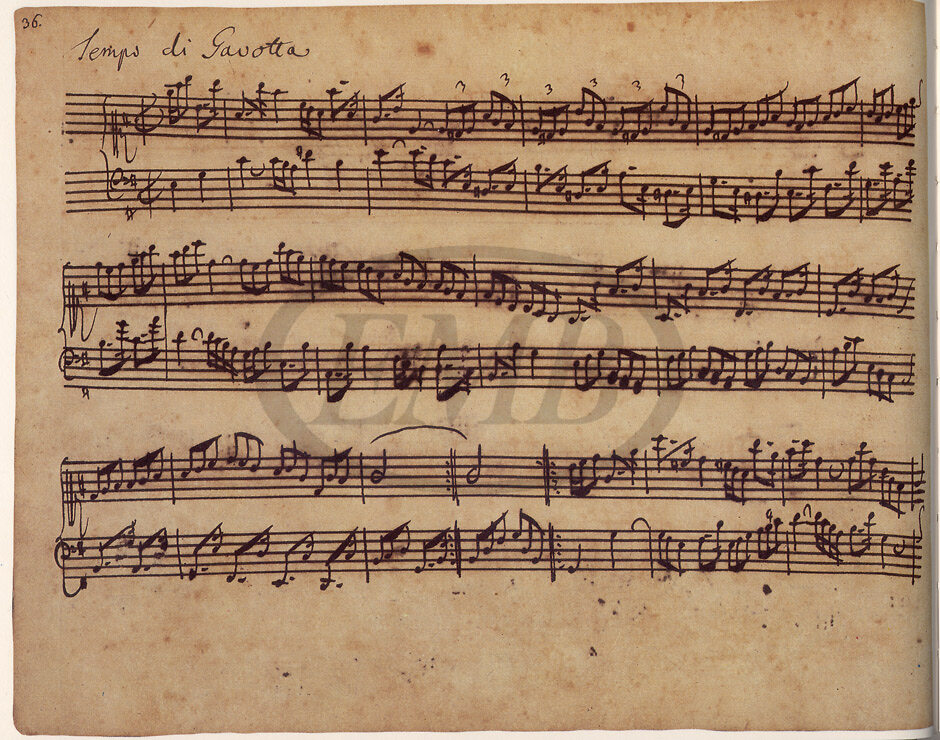 36.
Tempo di Gavotta
3 3 3 3 3 3
EMB